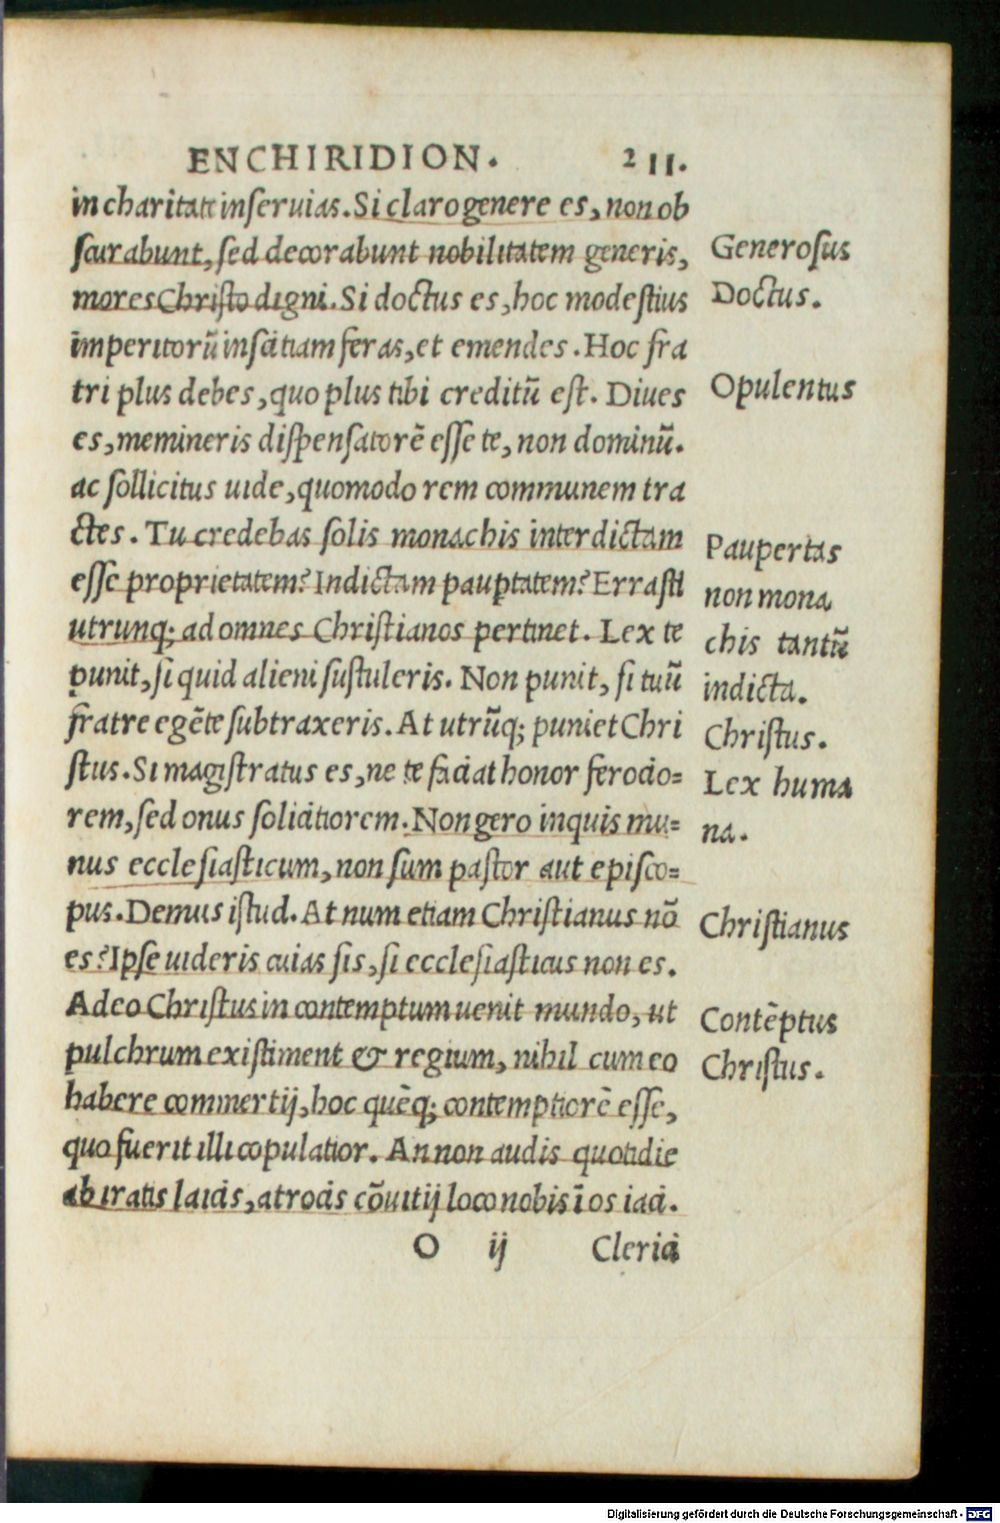 ENCHIRIDION. 211.
in charitate inseruias. Si claro genere es, non ob
scurabunt, sed decorabunt nobilitatem generis,
mores Christo digni. Si doctus es, hoc modestius
imperitorũ inscitiam feras, et emendes. Hoc fra
tri plus debes, quo plus tibi creditũ est. Diues
es, memineris dispensatorẽ esse te, non dominũ.
ac sollicitus uide, quomodo rem communem tra
ctes. Tu credebas solis monachis interdictam
esse proprietatem? Indictam pauptatem? Errasti
utrunq; ad omnes Christianos pertinet. Lex te
punit, si quid alieni sustuleris. Non punit, si tuũ
fratre egẽte subtraxeris. At utrũq; puniet Chri
stus. Si magistratus es, ne te faciat honor ferocio=
rem, sed onus solicitiorem. Non gero inquis mu=
nus ecclesiasticum, non sum pastor aut episco=
pus. Demus istud. At num etiam Christianus nõ
es? Ipse uideris cuias sis, si ecclesiasticus non es.
Adeo Christus in contemptum uenit mundo, ut
pulchrum existiment & regium, nihil cum eo
habere commertij, hoc quẽq; contemptiorẽ esse,
quo fuerit illi copulatior. An non audis quotidie
ab iratis laicis, atrocis cõuitij loco nobis ĩ os iaci.
O ij Clerici
Generosus
Doctus.
Opulentus
Paupertas
non mona
chis tantũ
indicta.
Christus.
Lex huma
na.
Christianus
Contẽptus
Christus.
Digitalisierung gefördert durch die Deutsche Forschungsgemeinschaft - DFG